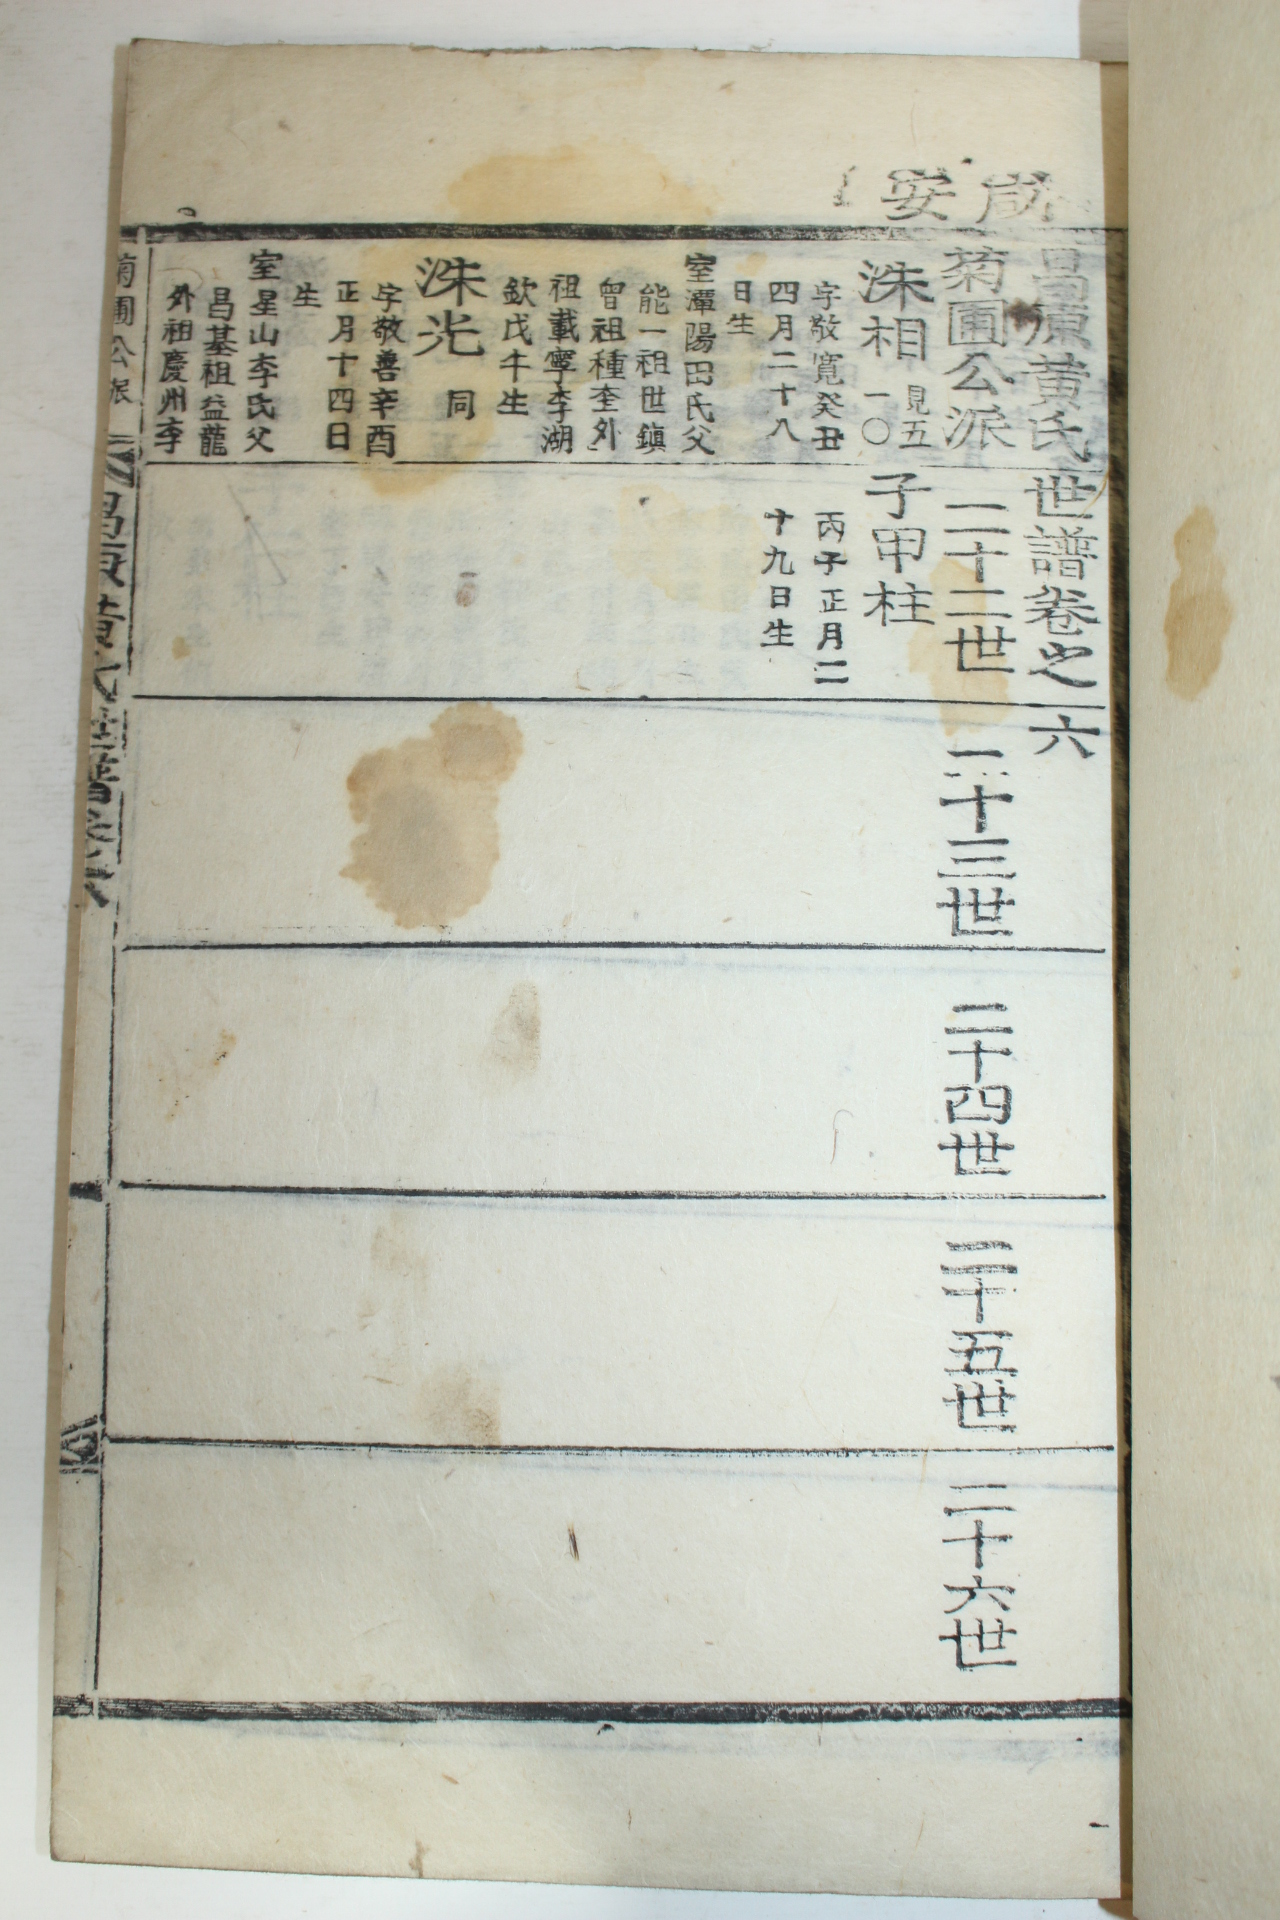 咸安
昌原黃氏世譜卷之六
菊圃公派
二十二世
二十三世
二十四世
二十五世
二十六世
洙相 見五一〇
字敬寬癸丑
四月二十八
日生
室潭陽田氏父
能一祖世鎮
曾祖種奎外
祖載寧李湖
欽戊午生
洙光 同
字敬善辛酉
正月十四日
生
室星山李氏父
昌基祖益龍
外祖慶州李
子甲柱
丙子正月二
十九日生
菊圃公派
昌原黃氏世譜卷六